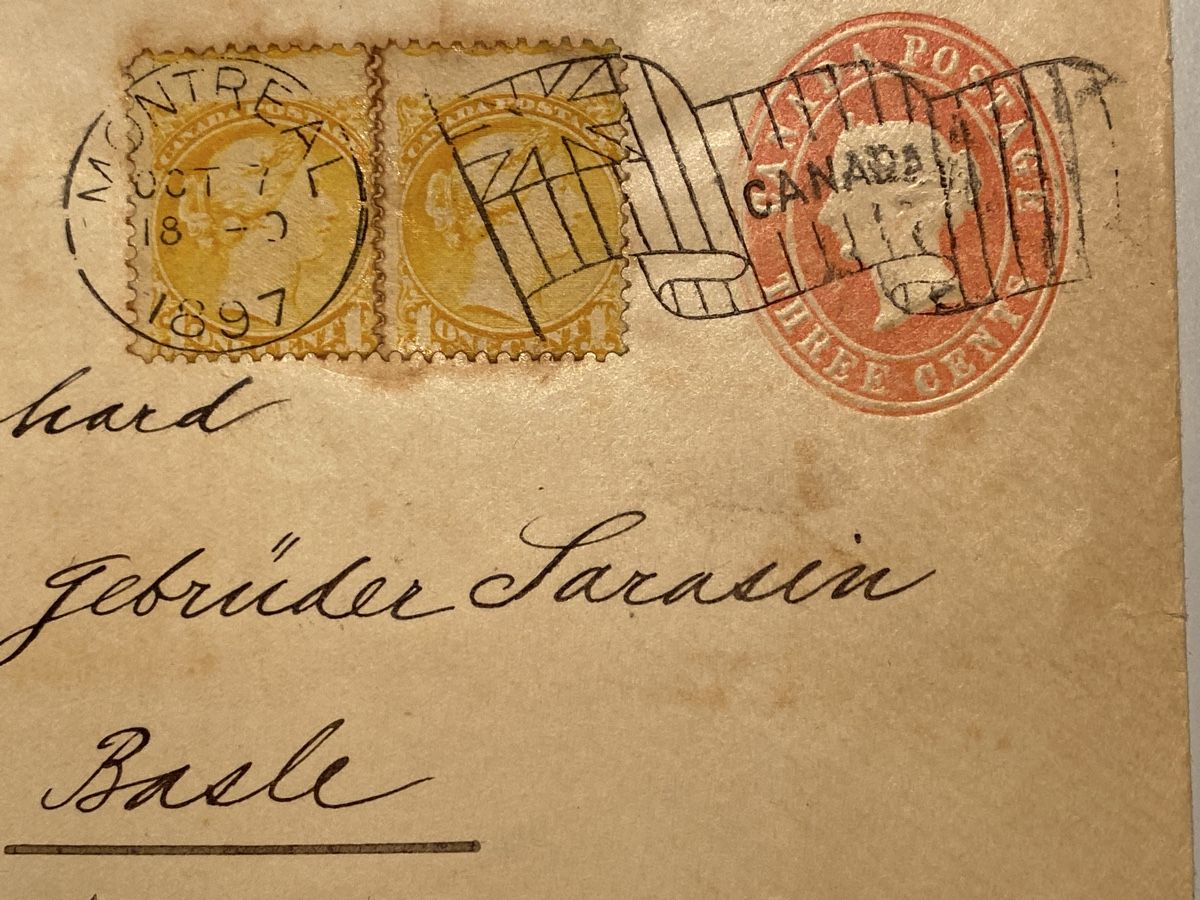 MONTREAL
OCT 7
18 - 0
1897
CANADA POSTAGE
ONE CENT 1
CANADA POSTAGE
1 ONE CENT 1
CANADA
CANADA POSTAGE
THREE CENTS
hard
Gebrüder Sarasin
Basle